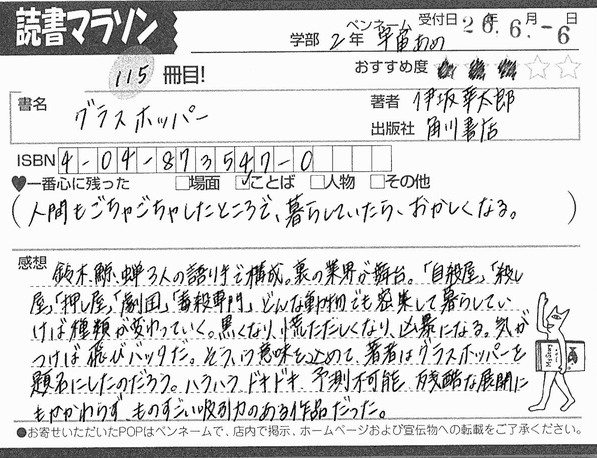 読書マラソン
学部 2年 ペンネーム 宇宙あめ 受付日 26年6月-6日
115冊目!
おすすめ度 ★★★☆☆
書名 グラスホッパー
著者 伊坂幸太郎
出版社 角川書店
ISBN 4-04-873547-0
♥一番心に残った □場面 ☑ことば □人物 □その他
(人間もごちゃごちゃしたところで、暮らしていたら、おかしくなる。)
感想
鈴木、鯨、蝉3人の語り手で構成。裏の業界が舞台。「自殺屋」「殺し
屋」「押し屋」「劇団」「毒殺専門」どんな動物でも密集して暮らしてい
けば種類が変わっていく。黒くなり、慌ただしくなり、凶暴になる。気が
つけば飛びバッタだ。そういう意味を込めて、著者はグラスホッパーを
題名にしたのだろう。ハラハラドキドキ 予測不可能 残酷な展開に
もかかわらず ものすごい吸引力のある作品だった。
●お寄せいただいたPOPはペンネームで、店内で掲示、ホームページおよび宣伝物への転載をご了承ください。